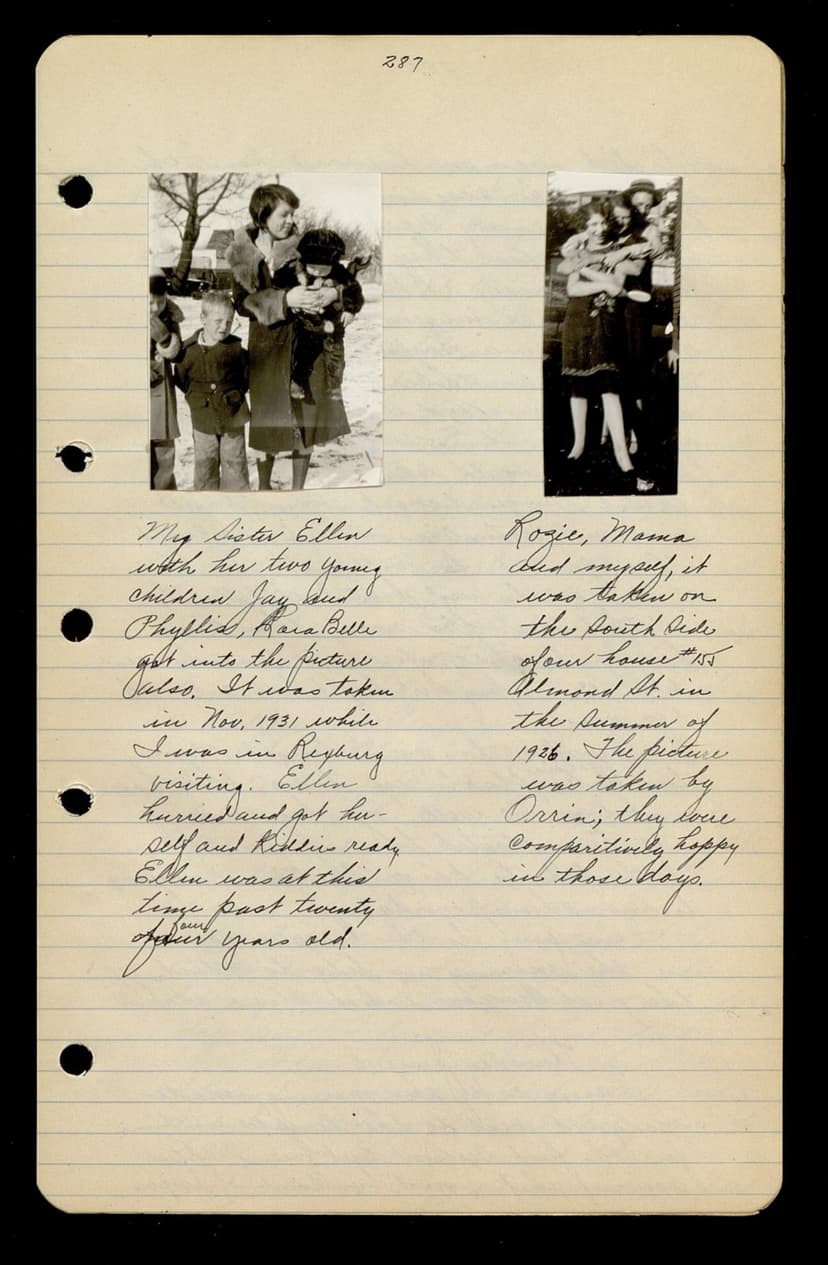 287
My Sister Ellen
with her two young
children Jay and
Phyllis, Rara Belle
got into the picture
also. It was taken
in Nov. 1931 while
I was in Rexburg
visiting. Ellen
hurried and got her-
self and Kiddies ready
Ellen was at this
time past twenty
four years old.
Rozie, Mama
and myself, it
was taken on
the South Side
of our house #155
Almond St. in
the Summer of
1926. The picture
was taken by
Orrin; they were
comparitively happy
in those days.